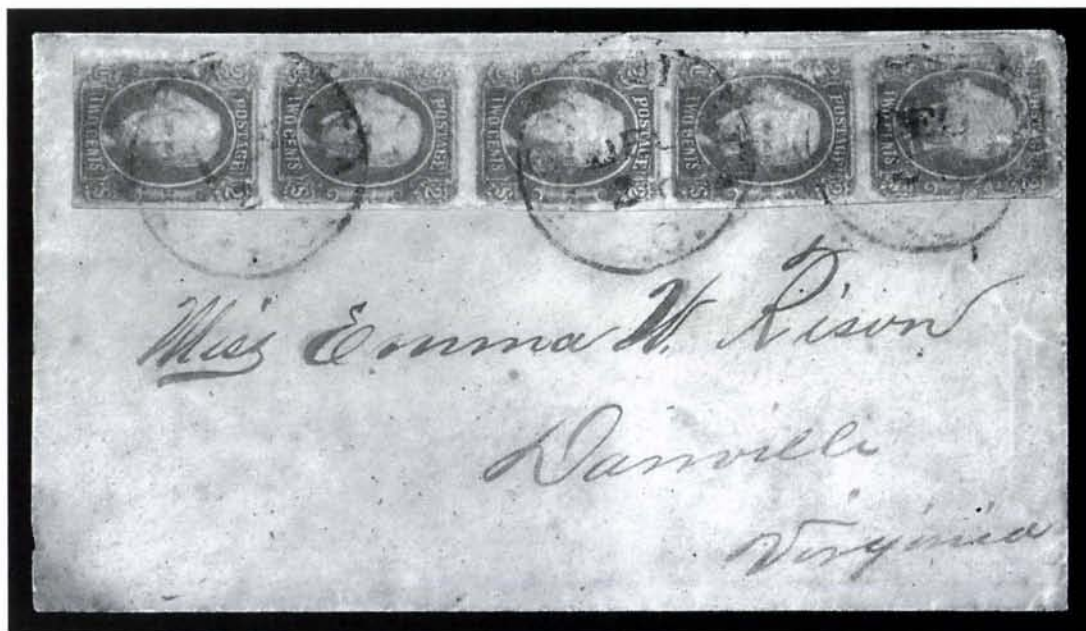 TWO CENTS POSTAGE 2
TWO CENTS POSTAGE 2
TWO CENTS POSTAGE 2
TWO CENTS POSTAGE 2
TWO CENTS
Miss Emma W. Rison
Danville
Virginia